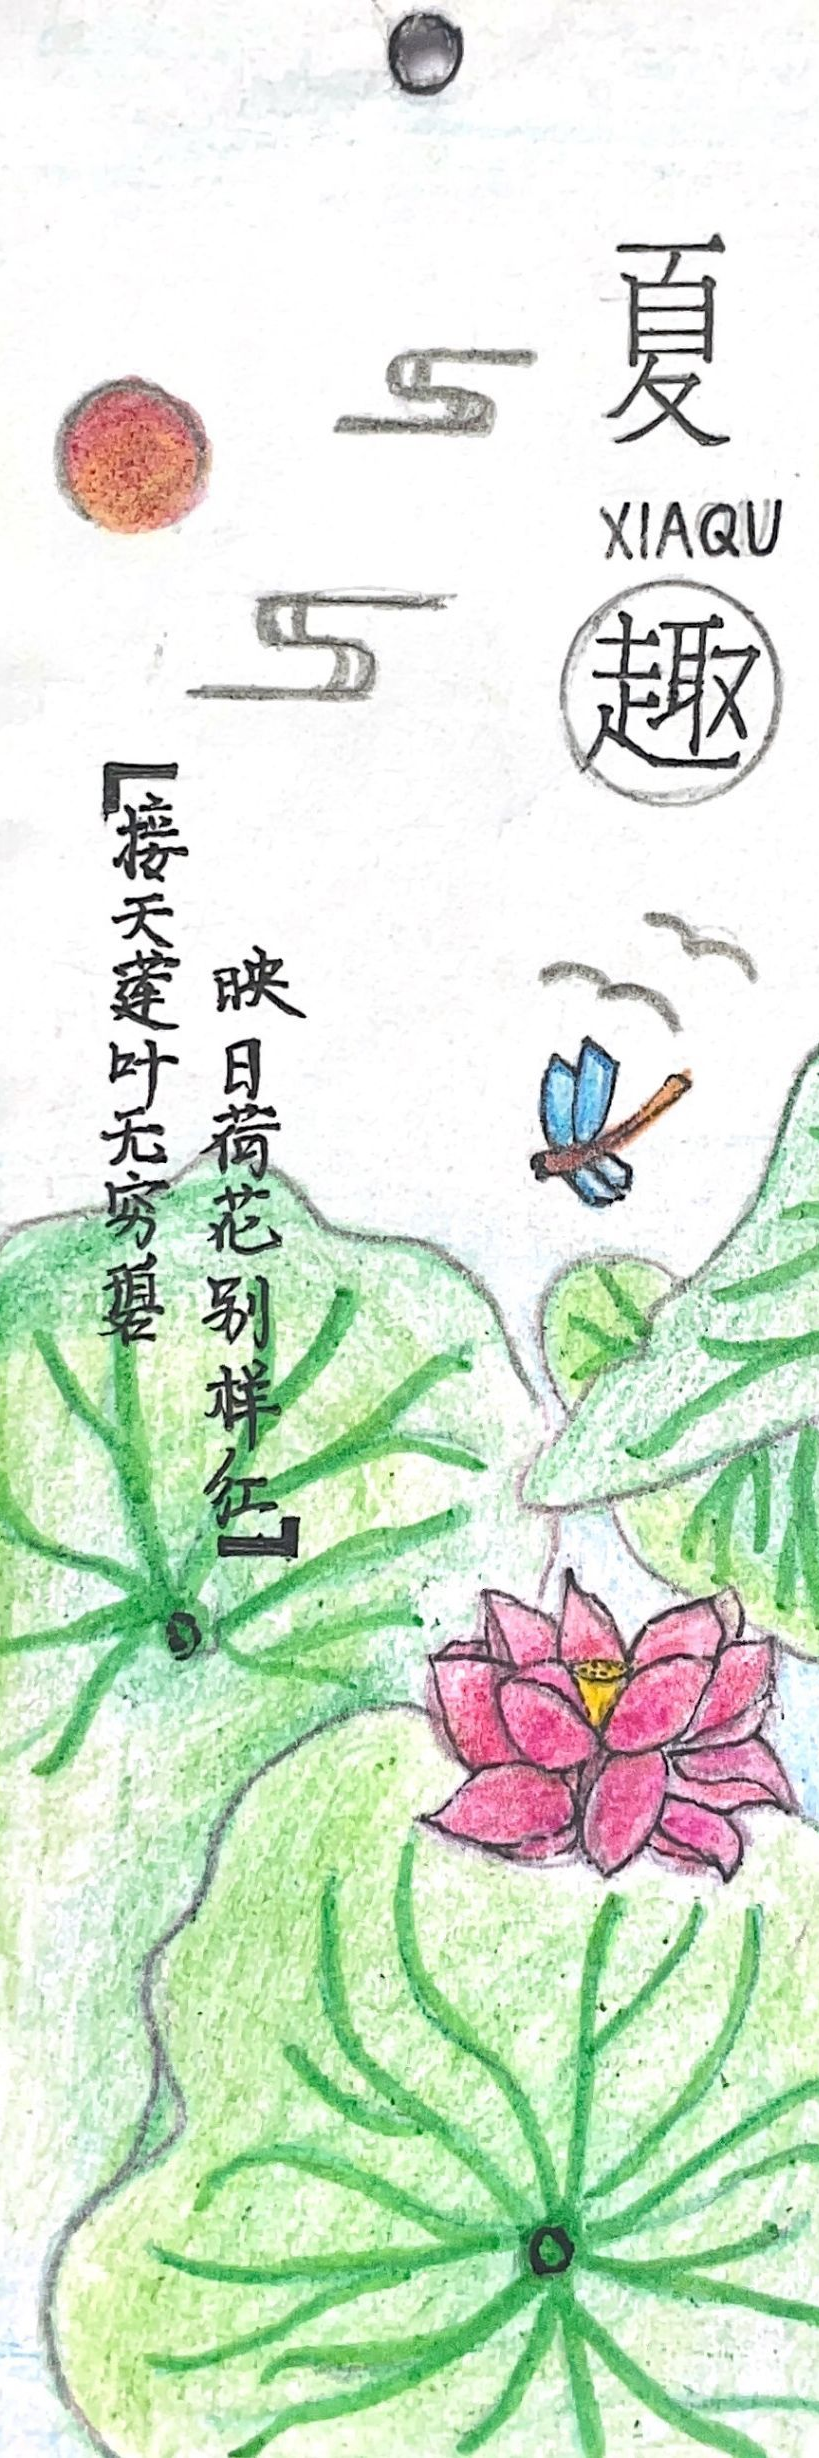 夏
XIAQU
趣
「接天莲叶无穷碧
映日荷花别样红」